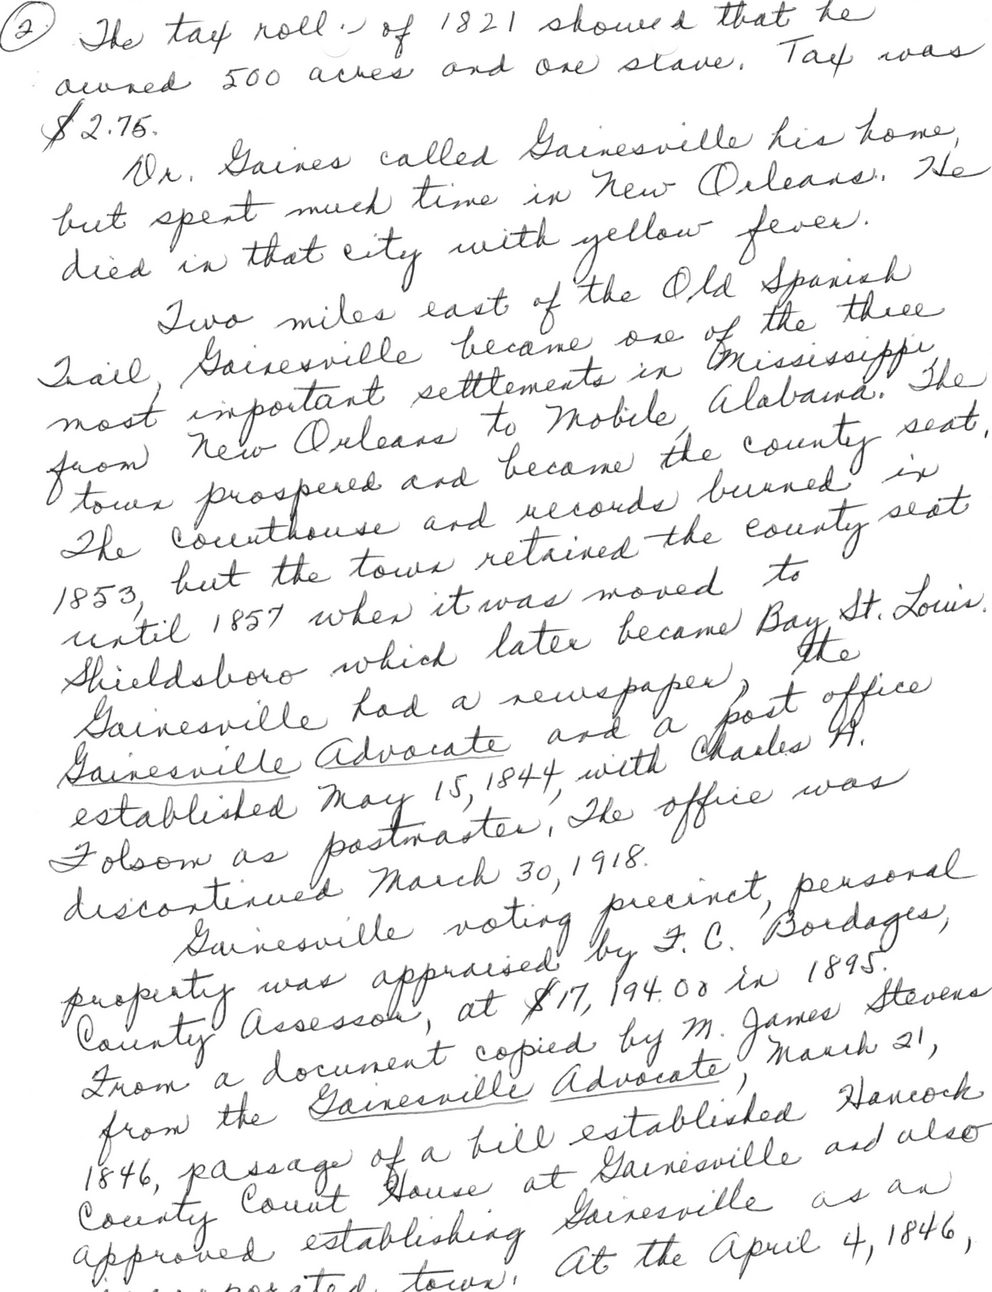 2 The tax roll of 1821 showed that he
owned 500 acres and one slave. Tax was
$2.75.
Dr. Gaines called Gainesville his home,
but spent much time in New Orleans. He
died in that city with yellow fever.
Two miles east of the Old Spanish
Trail, Gainesville became one of the three
most important settlements in Mississippi
from New Orleans to Mobile, Alabama. The
town prospered and became the county seat.
The courthouse and records burned in
1853, but the town retained the county seat
until 1857 when it was moved to
Shieldsboro which later became Bay St. Louis.
Gainesville had a newspaper, the
Gainesville Advocate and a post office
established May 15, 1844, with Charles H.
Folsom as postmaster. The office was
discontinued March 30, 1918.
Gainesville voting precinct, personal
property was appraised by F. C. Bordages,
County Assessor, at $17,194.00 in 1895.
From a document copied by M. James Stevens
from the Gainesville Advocate, March 21,
1846, passage of a bill established Hancock
County Court House at Gainesville and also
approved establishing Gainesville as an
incorporated town. At the April 4, 1846,